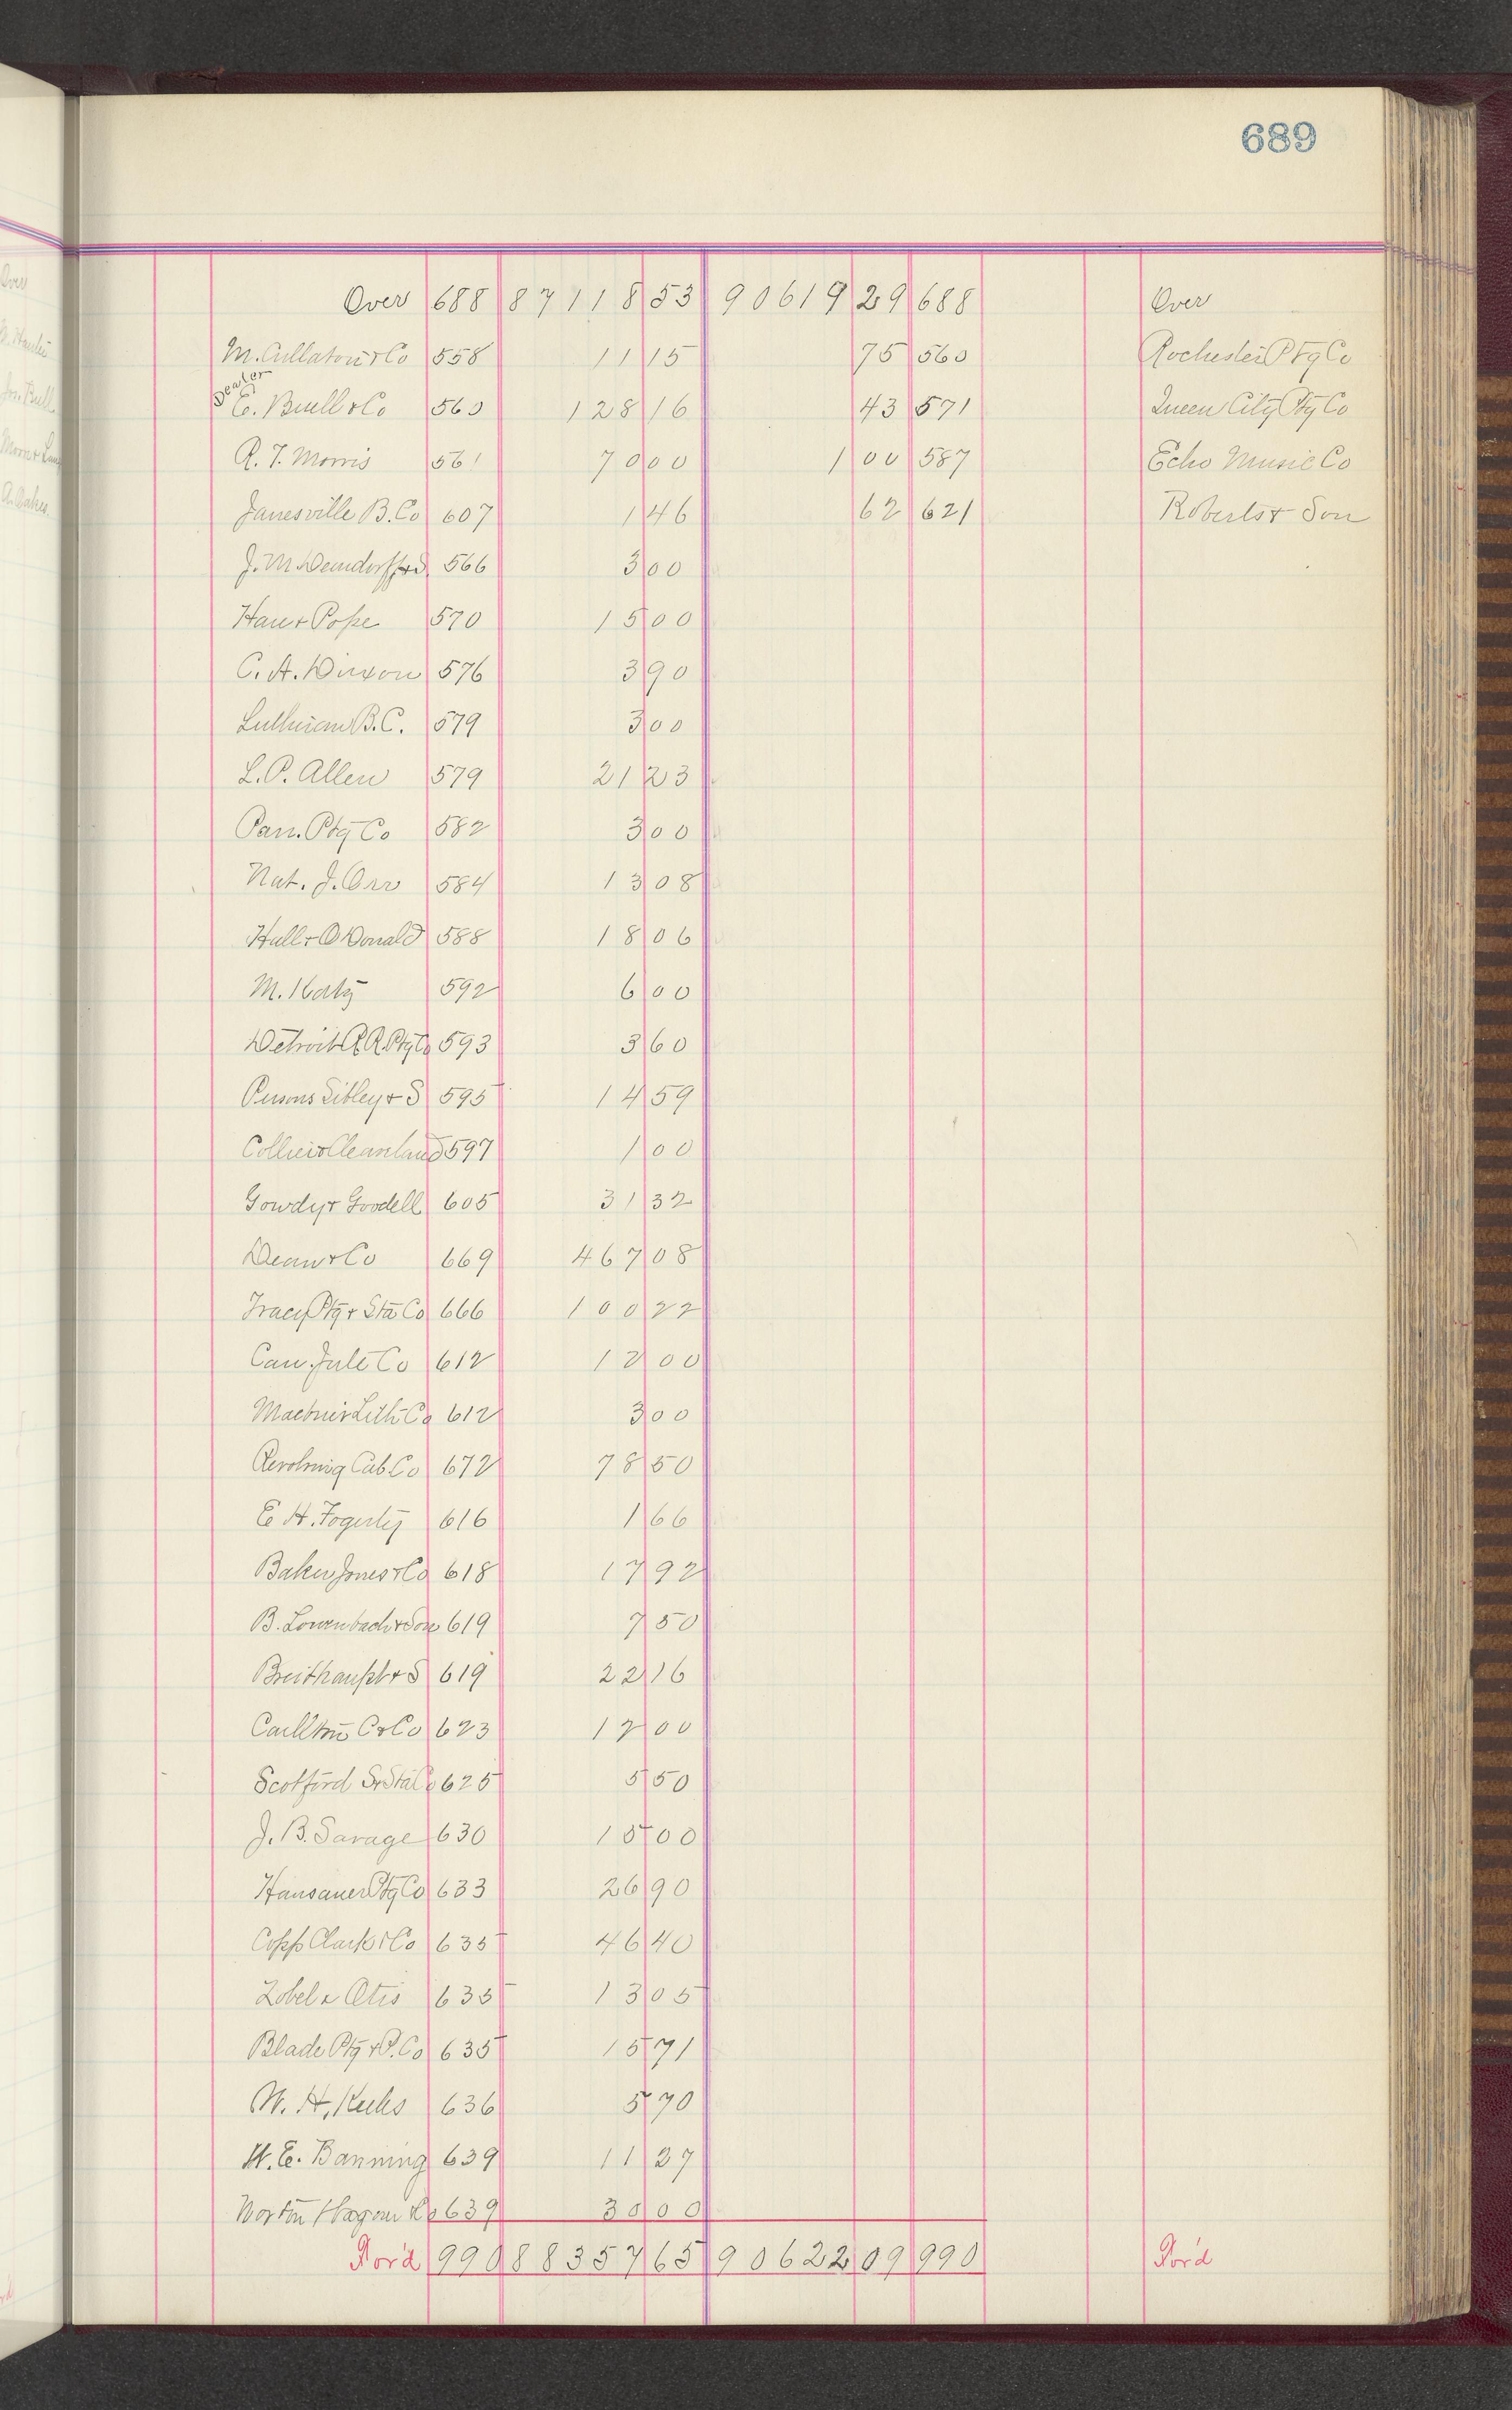 689
Over 688 87118 53 90619 29 688 Over
M. Cullaton & Co 558 11 15 75 560 Rochester Ptg Co
Dealer
E. Buell & Co 560 128 16 43 571 Queen City Ptg Co
R. T. Morris 561 70 00 1 00 587 Echo Music Co
Janesville B. Co 607 1 46 62 621 Roberts & Son
J. M. 566 3 00
& Pope 570 15 00
C. A. 576 3 90
B.C. 579 3 00
L. P. Allen 579 21 23
Pan. Ptg Co 582 3 00
Nat. J. Orr 584 13 08
Hull & O'Donald 588 18 06
M. Katz 592 6 00
Detroit R.R. Ptg Co 593 3 60
Persons Sibley & S 595 14 59
Collier & Cleanland 597 1 00
Gowdy & Goodell 605 31 32
Dean & Co 669 467 08
Tracy Ptg & Sta Co 666 100 22
Can. Jute Co 612 12 00
Lith Co 612 3 00
Cab. Co 672 78 50
E. H. Fogerty 616 1 66
Baker Jones & Co 618 17 92
B. Lowenbach & Son 619 7 50
Breithaupt & S 619 22 16
C & Co 623 12 00
Scotford S. & Sta Co 625 5 50
J. B. Savage 630 15 00
Hausauer Ptg Co 633 26 90
Copp Clark & Co 635 46 40
Zobel & Otis 635 13 05
Blade Ptg & P. Co 635 15 71
W. H. 636 5 70
W. E. Banning 639 11 27
639 30 00
For'd 990 88357 65 90622 09 990 For'd